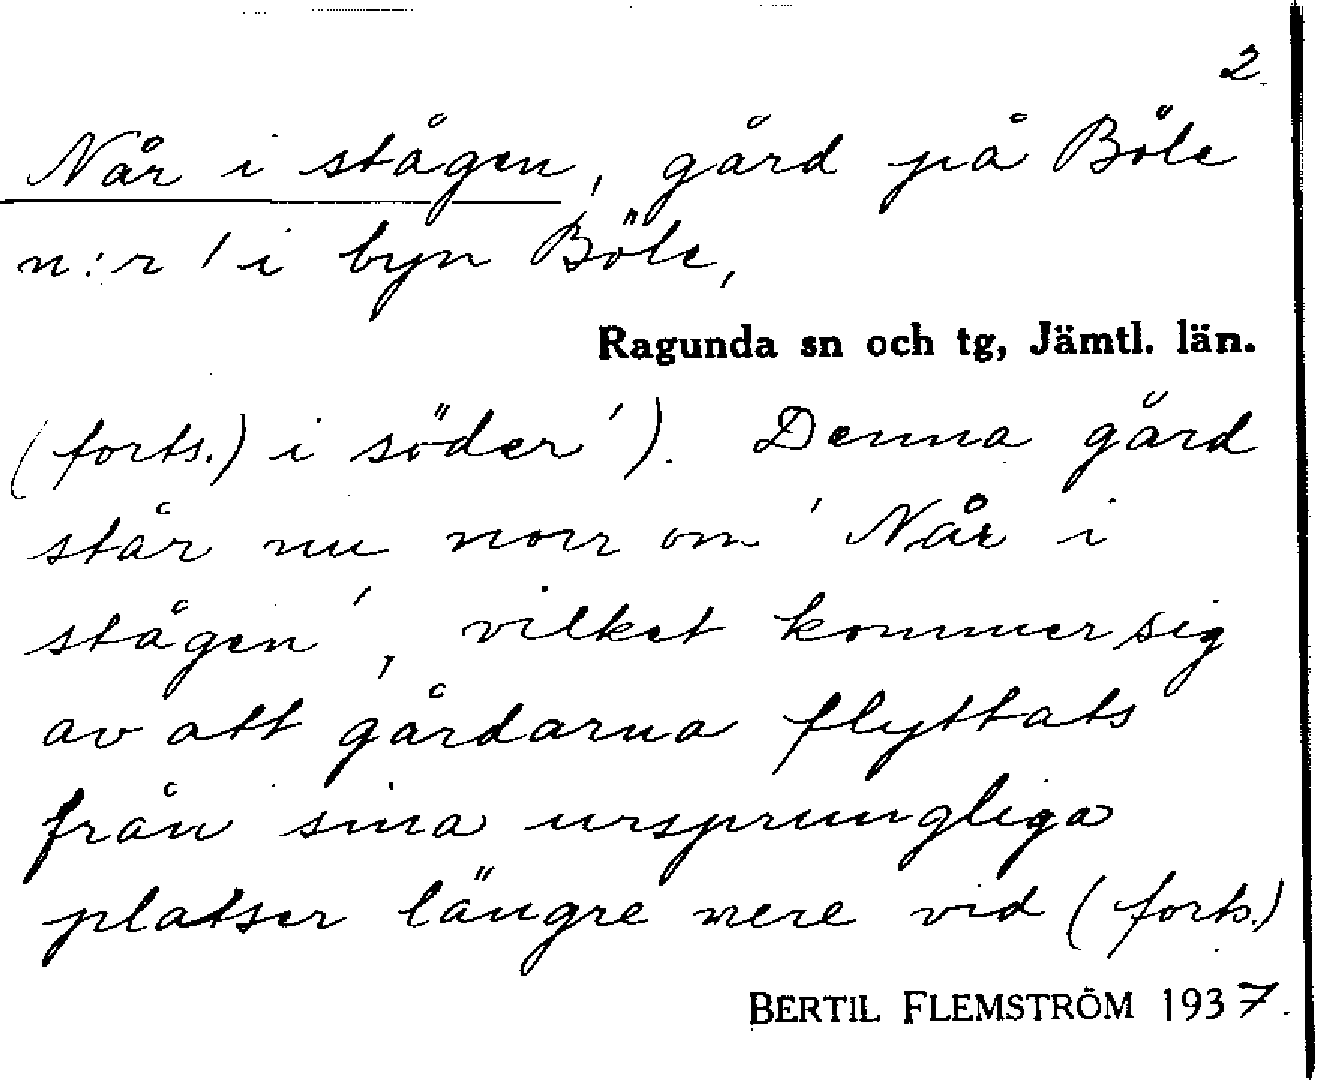 2
Når i stågen, gård på Böle
n:r 1 i byn Böle,
Ragunda sn och tg, Jämtl. län.
(forts.) i söder'). Denna gård
står nu norr om 'Når i
stågen', vilket kommer sig
av att gårdarna flyttats
från sina ursprungliga
platser längre nere vid (forts.)
BERTIL FLEMSTRÖM 1937.